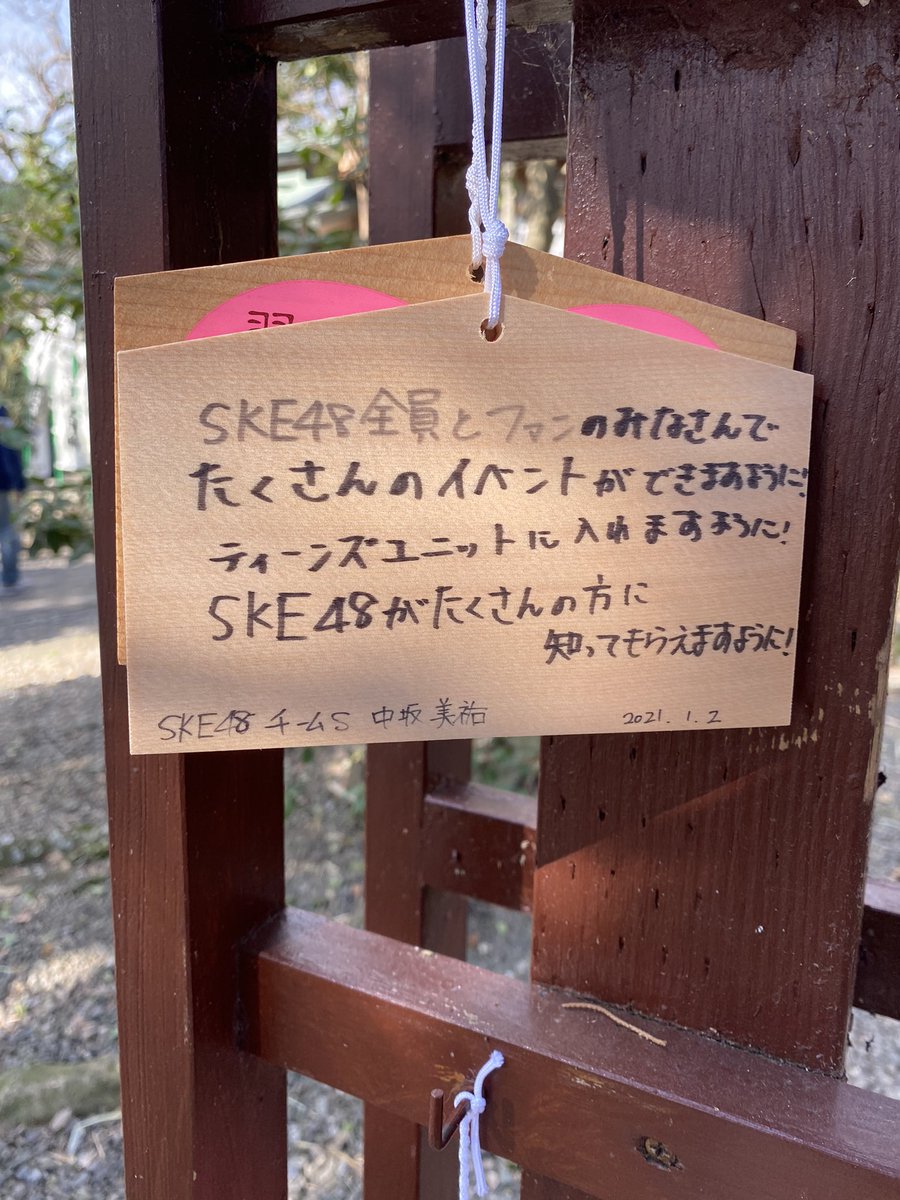 SKE48全員とファンのみなさんで
たくさんのイベントができますように!
ティーンズユニットに入れますように!
SKE48がたくさんの方に
知ってもらえますように!
SKE48 チームS 中坂美祐
2021.1.2